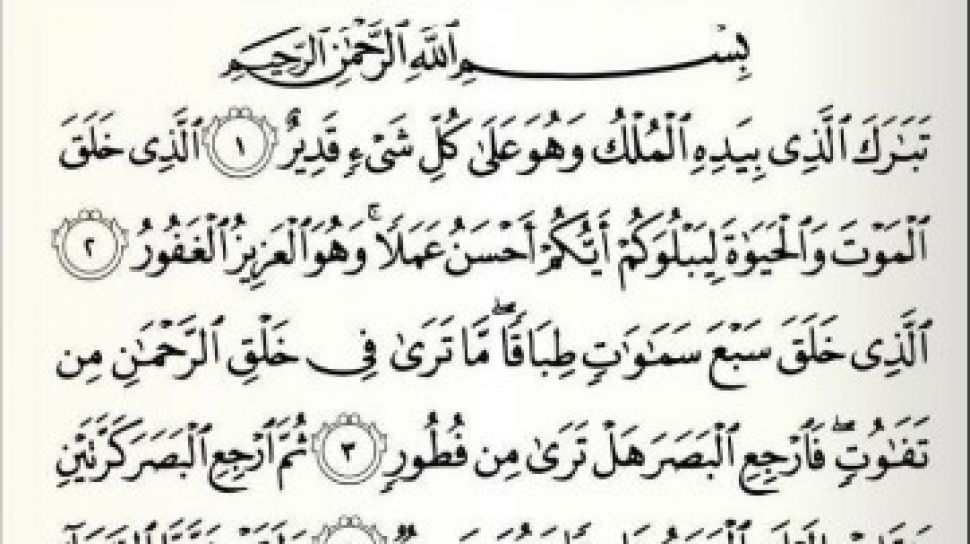 بِسْمِ ٱللَّهِ ٱلرَّحْمَٰنِ ٱلرَّحِيمِ
تَبَٰرَكَ ٱلَّذِى بِيَدِهِ ٱلْمُلْكُ وَهُوَ عَلَىٰ كُلِّ شَىْءٍ قَدِيرٌ ١ ٱلَّذِى خَلَقَ
ٱلْمَوْتَ وَٱلْحَيَوٰةَ لِيَبْلُوَكُمْ أَيُّكُمْ أَحْسَنُ عَمَلًا ۚ وَهُوَ ٱلْعَزِيزُ ٱلْغَفُورُ ٢
ٱلَّذِى خَلَقَ سَبْعَ سَمَٰوَٰتٍ طِبَاقًا ۖ مَّا تَرَىٰ فِى خَلْقِ ٱلرَّحْمَٰنِ مِن
تَفَٰوُتٍ ۖ فَٱرْجِعِ ٱلْبَصَرَ هَلْ تَرَىٰ مِن فُطُورٍ ٣ ثُمَّ ٱرْجِعِ ٱلْبَصَرَ كَرَّتَيْنِ